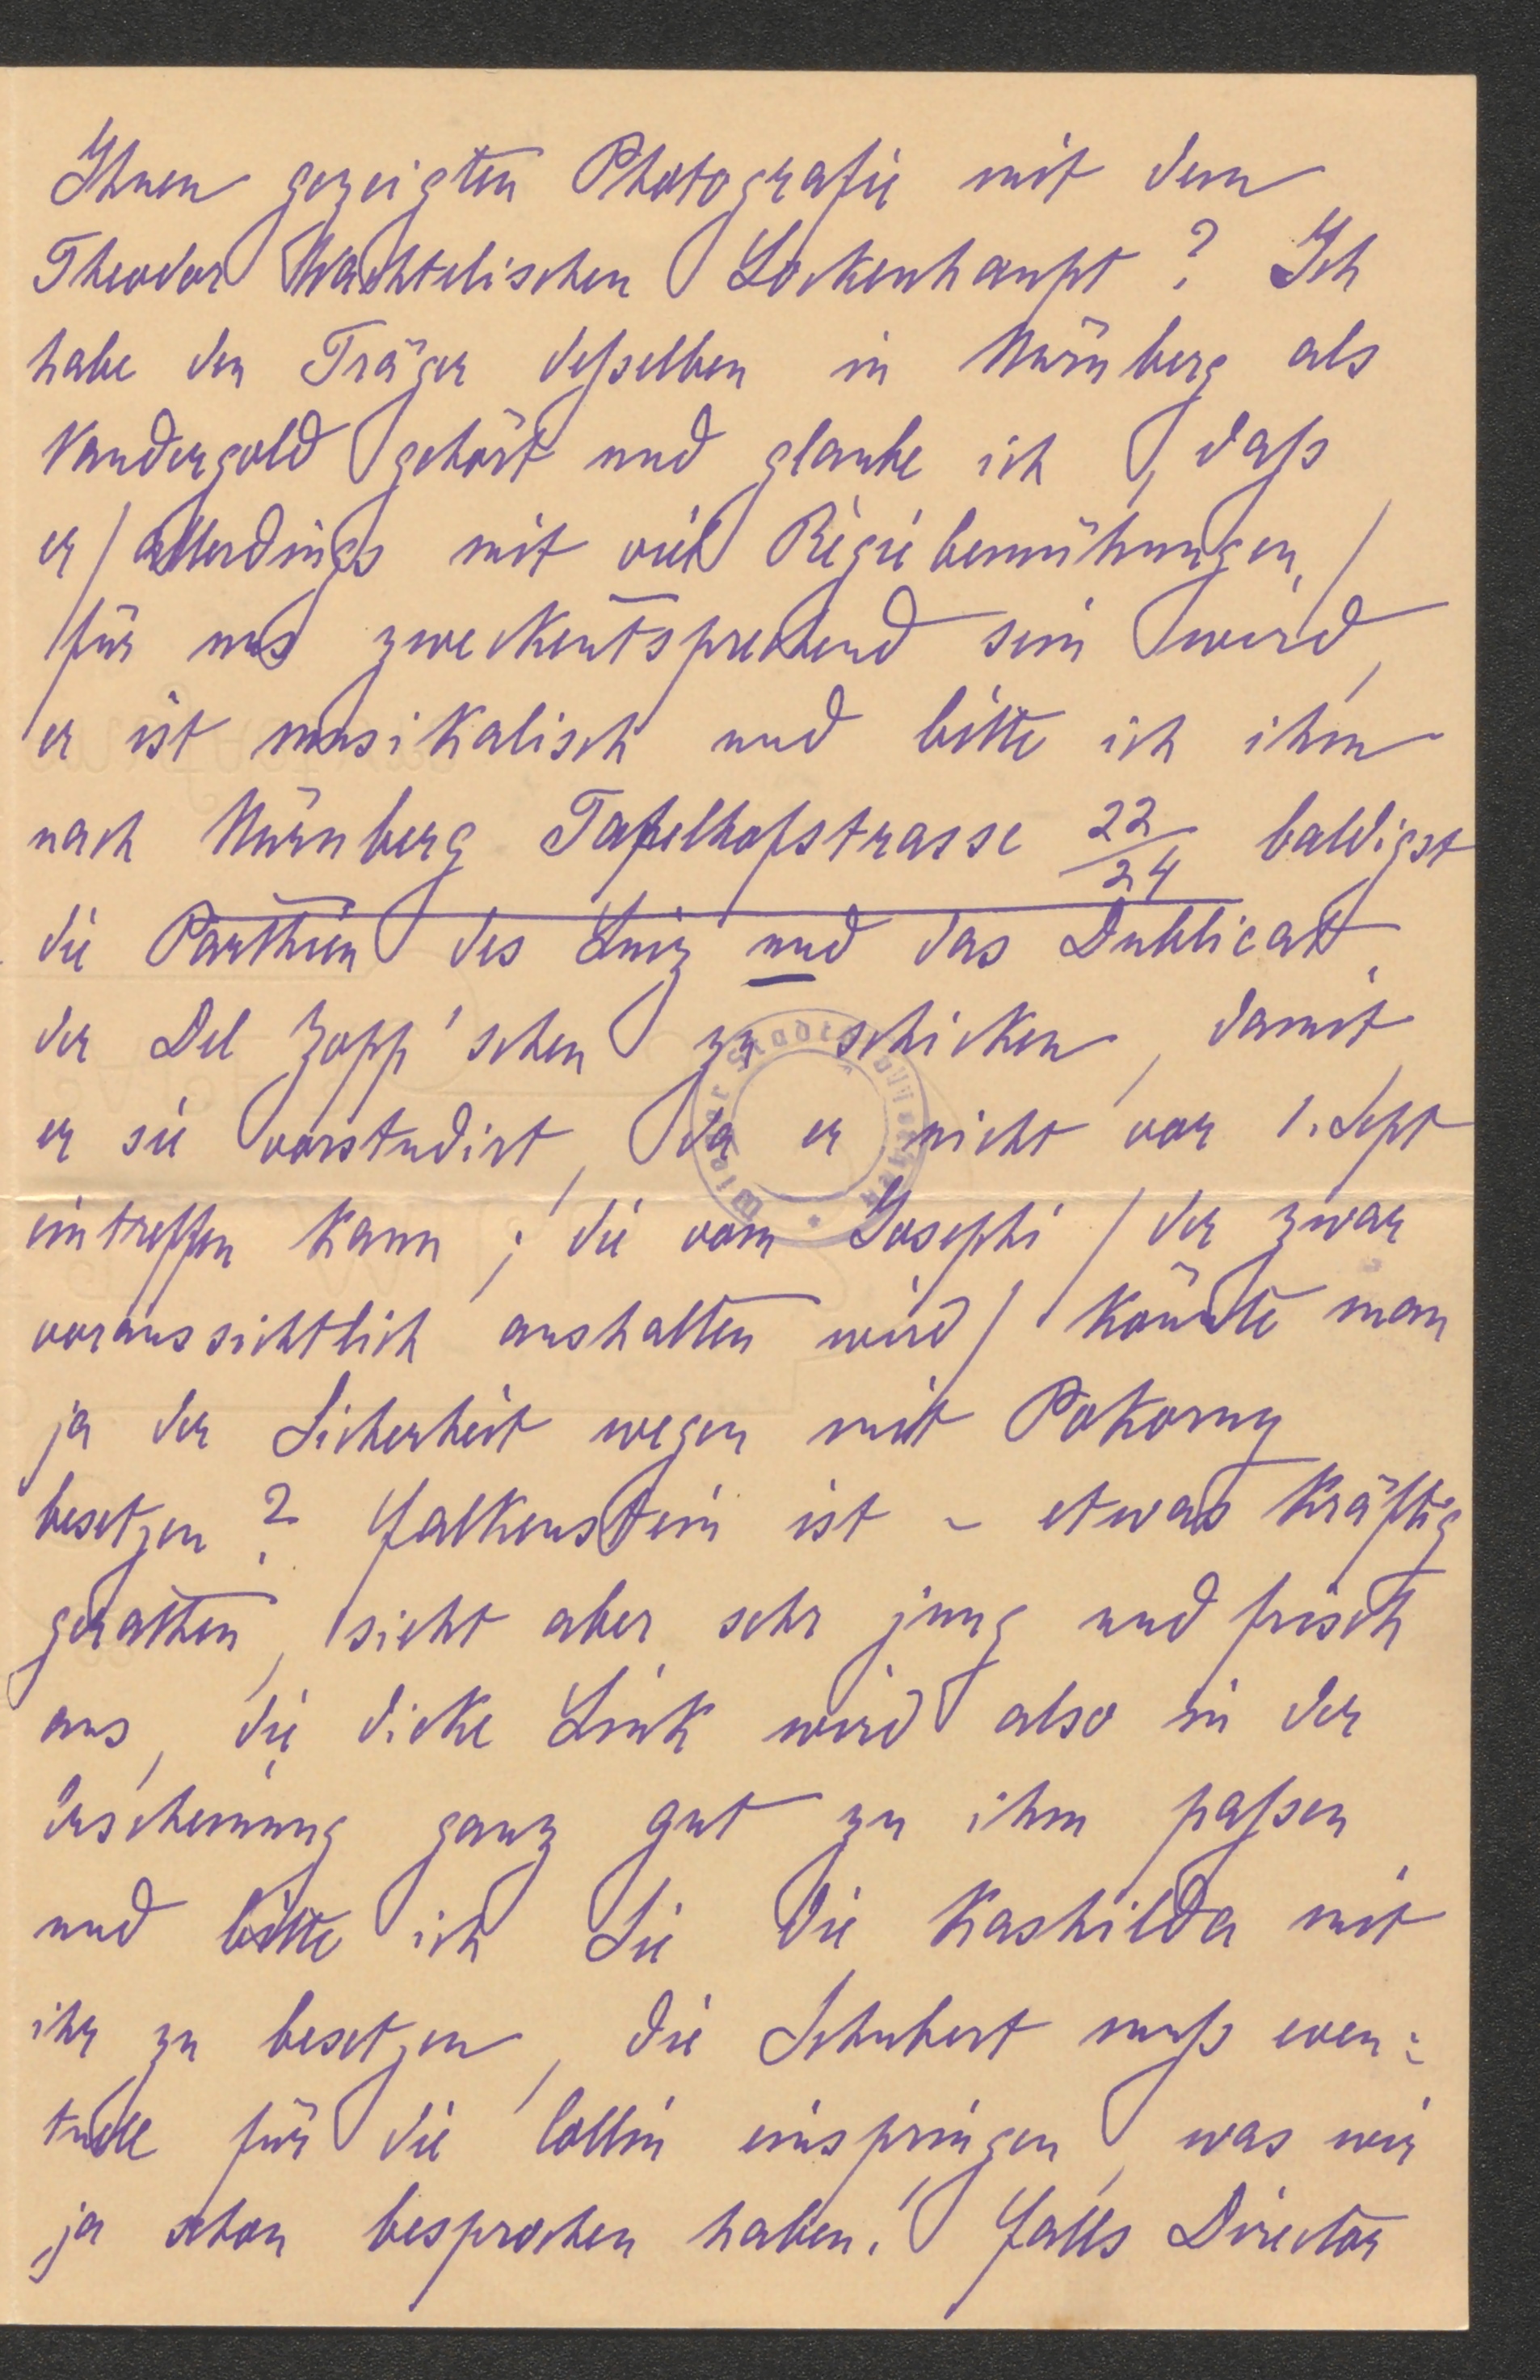 Ihnen gezeigten Photografie mit dem
Theodor Wachtelischen Lockenhaupt? Ich
habe den Träger deßelben in Nürnberg als
Vandergold gehört und glaube ich, daß
er / allerdings mit viel Regiebemühungen, /
für uns zweckentsprechend sein wird,
er ist musikalisch und bitte ich ihm
nach Nürnberg Tafelhofstrasse 22/24 baldigst
die Parthien des und das Dublicat
der Del Zopp'schen zu schicken, damit
er sie vorstudirt, da er nicht vor 1. Sept
eintreffen kann; die vom Josephi / der zwar
voraussichtlich aushalten wird / könnte man
ja der Sicherheit wegen mit Pokorny
besetzen? Falkenstein ist - etwas kräftig
gerathen, sieht aber sehr jung und frisch
aus, die dicke Link wird also in der
Erscheinung ganz gut zu ihm paßen
und bitte ich Sie die Kashilda mit
ihr zu besetzen, die Schubert muß even:
tuell für die Collin einspringen, was wir
ja schon besprochen haben! Falls Director
Wiener Stadtbibliothek